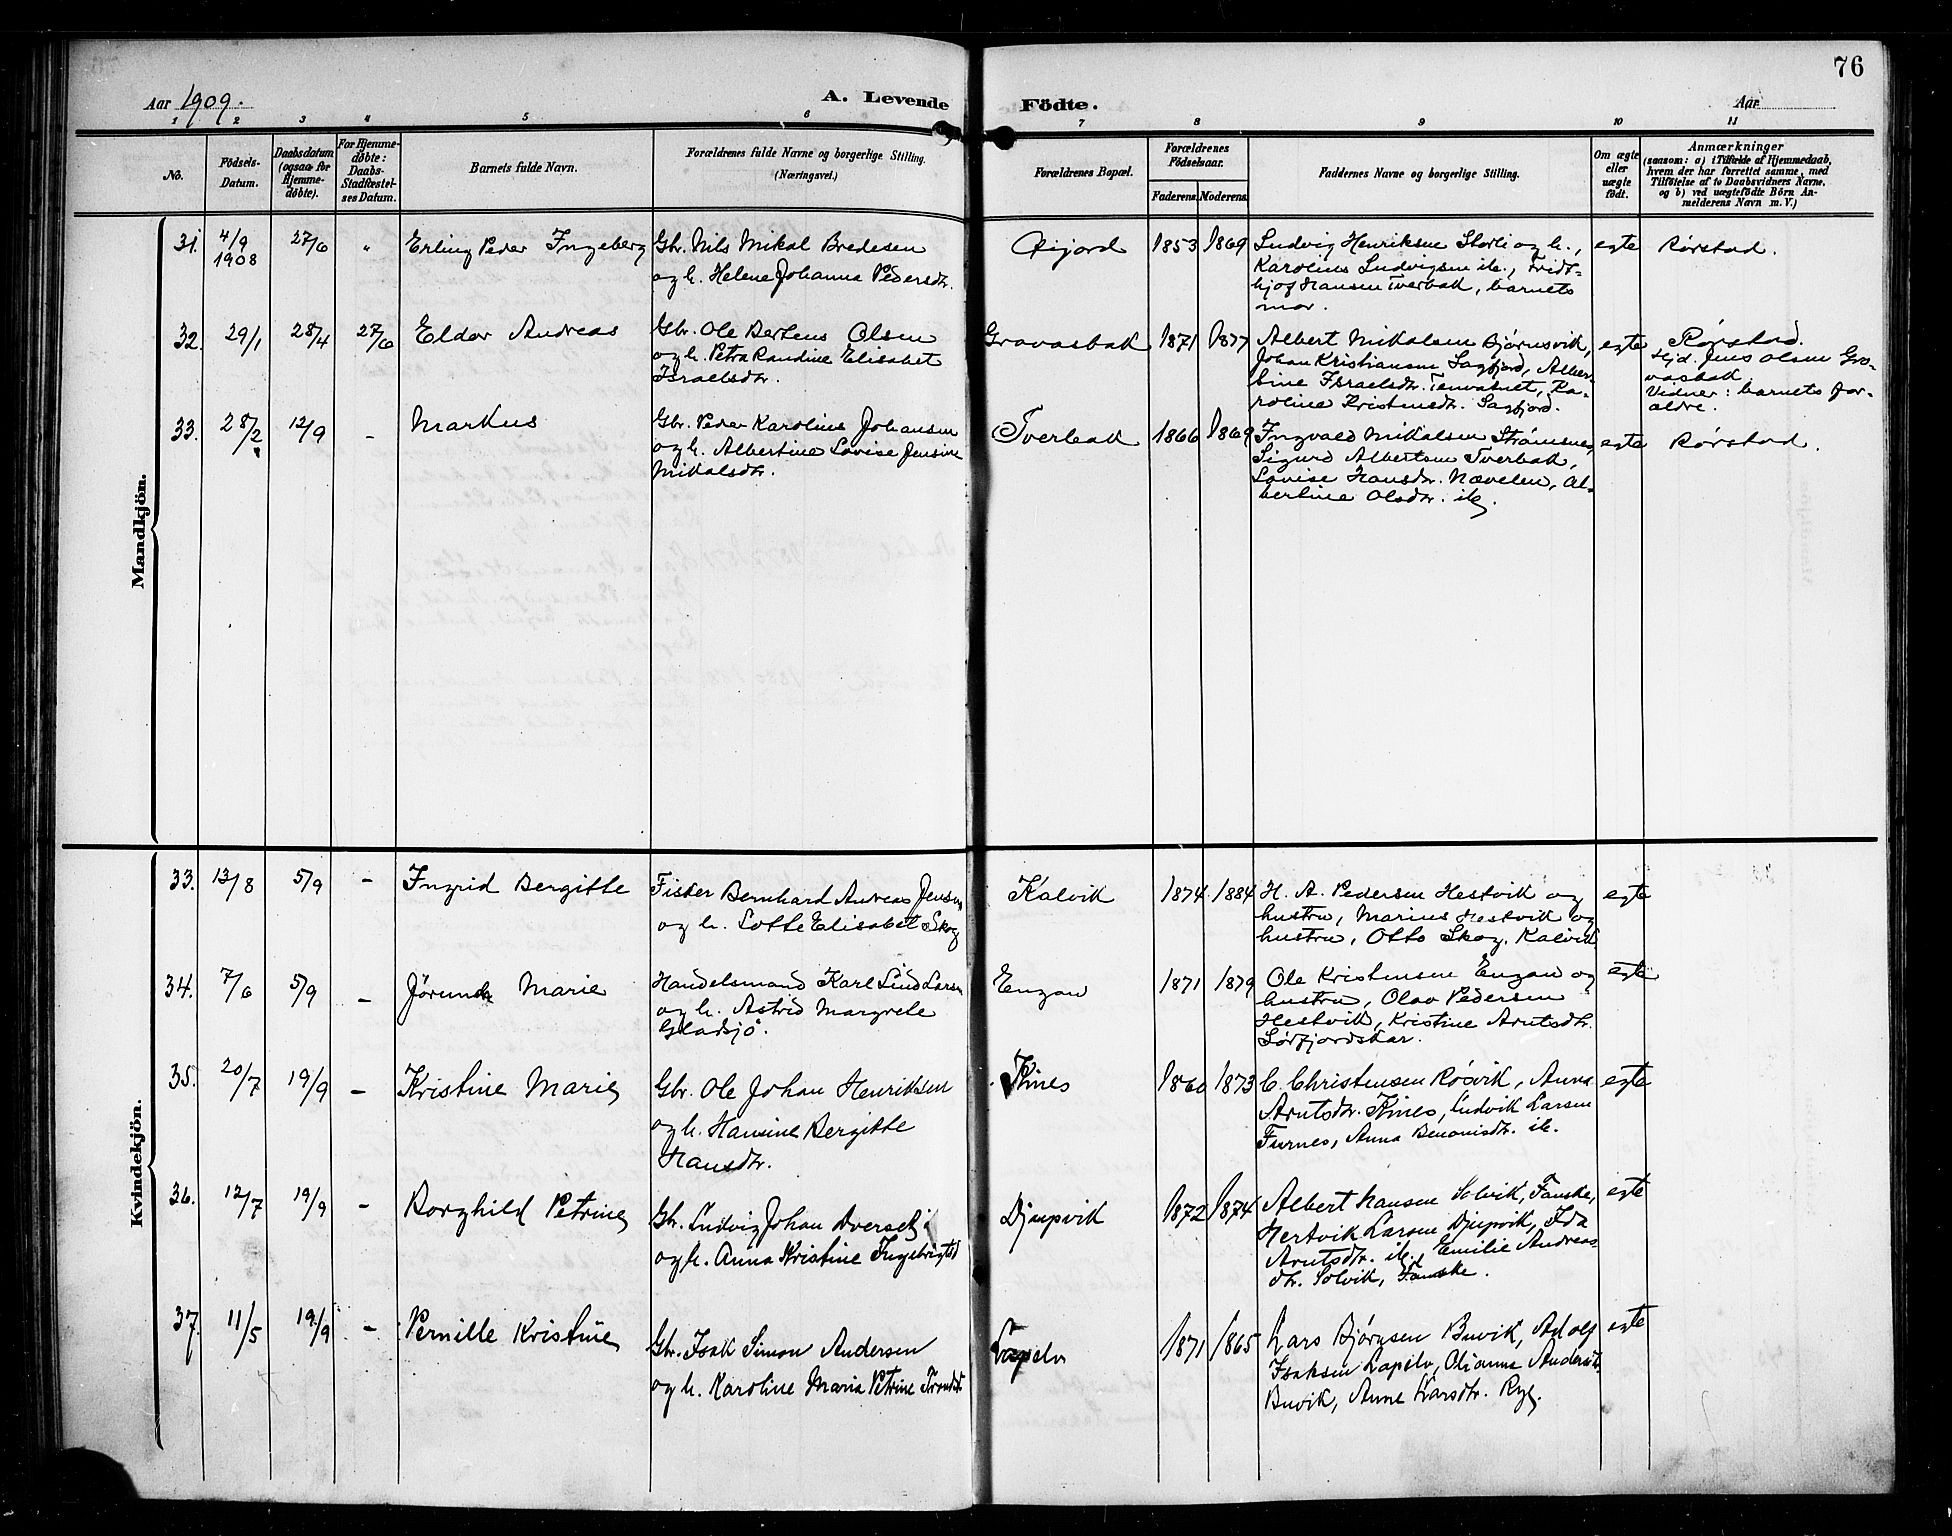 76
Aar 1909.
A. Levende Födte.
Aar
1 2 3 4 5 6 7 8 9 10 11
No.
Födsels-
Datum.
Daabsdatum
(ogsaa for
Hjemme-
döbte).
For Hjemme-
döbte:
Daabs-
Stadfæstel-
ses Datum.
Barnets fulde Navn.
Forældrenes fulde Navne og borgerlige Stilling.
(Næringsvei.)
Forældrenes Bopæl.
Forældrenes
Födselsaar.
Faderens. Moderens.
Faddernes Navne og borgerlige Stilling.
Om ægte
eller
uægte
födt.
Anmærkninger
(saasom: a) i Tilfælde af Hjemmedaab,
hvem der har forrettet samme, med
Tilföielse af to Daabsvidners Navne,
og b) ved uægtefödte Börn An-
melderens Navn m. V.)
Mandkjön.
31. 4/9 1908 27/6 " Erling Peder Ingeberg
Gbr. Nils Mikal Bredesen
og h. Helene Johanna Pedersdtr.
1853 1869
Ludvig Henriksen Storli og h.,
Karolius Ludvigsen ib., Fridt-
hjof Hansen Tverbak, barnets
mor.
egte Rørstad.
32. 29/1 28/4 27/6 Eldor Andreas
Gbr. Ole Bertens Olsen
og h. Petra Randine Elisabet
Israelsdtr.
Gravasbak 1871 1877
Albert Mikalsen Bjørnsvik,
Johan Kristiansen Sagfjord, Alber-
tine Israelsdtr. Tenvatnet, Ka-
roline Kristensdtr. Sagfjord.
egte Rørstad.
Hjd. Jens Olsen Gra-
vasbak.
Vidner: barnets for-
ældre.
33. 28/2 12/9 - Markus
Gbr. Peder Karolius Johansen
og h. Albertine Lovise Jensine
Mikalsdtr.
Tverbak 1866 1869
Ingvald Mikalsen Strømsnes,
Sigurd Albertsen Tverbak,
Lovise Hansdtr. Nævelen, Al-
bertine Olsdtr. ib.
egte Rørstad.
Kvindekjön.
33. 13/8 5/9 - Ingrid Bergitte
Fisker Bernhard Andreas Jensen
og h. Lotte Elisabet Skog
Kalvik 1874 1884
H. A. Pedersen Hestvik og
hustru, Marius Hestvik og
hustru, Otto Skog, Kalvik
egte
34. 7/6 5/9 - Jörunda Marie
Handelsmand Karl Lind Larsen
og h. Astrid Margrete
Gladsjö.
Engan 1871 1879
Ole Kristensen Engan og
hustru, Olav Pedersen
Hestvik, Kristine Arntsdtr.
Sørfjordskar.
egte
35. 20/7 19/9 - Kristine Marie
Gbr. Ole Johan Henriksen
og h. Hansine Bergitte
Hansdtr.
Kines 1860 1873
C. Christensen Røsvik, Anna
Arntsdtr. Kines, Ludvik Larsen
Furnes, Anna Benonisdtr. ib.
egte
36. 12/7 19/9 - Borghild Petrine
Gbr. Ludvig Johan
og h. Anna Kristine Ingebrigtsd
Djupvik 1872 1874
Albert Hansen Solvik, Fauske,
Hertvik Larsen Djupvik, Ida
Arntsdtr. ib., Emilie Andreas-
dtr. Solvik, Fauske.
egte
37. 11/5 19/9 - Pernille Kristine
Gbr. Isak Simon Andersen
og h. Karoline Maria Petrine Trondsd.
Lapelv 1871 1865
Lars Bjørnsen Buvik, Adolf
Isaksen Lapelv, Olianna Andersdtr.
Buvik, Anne Larsdtr.
egte